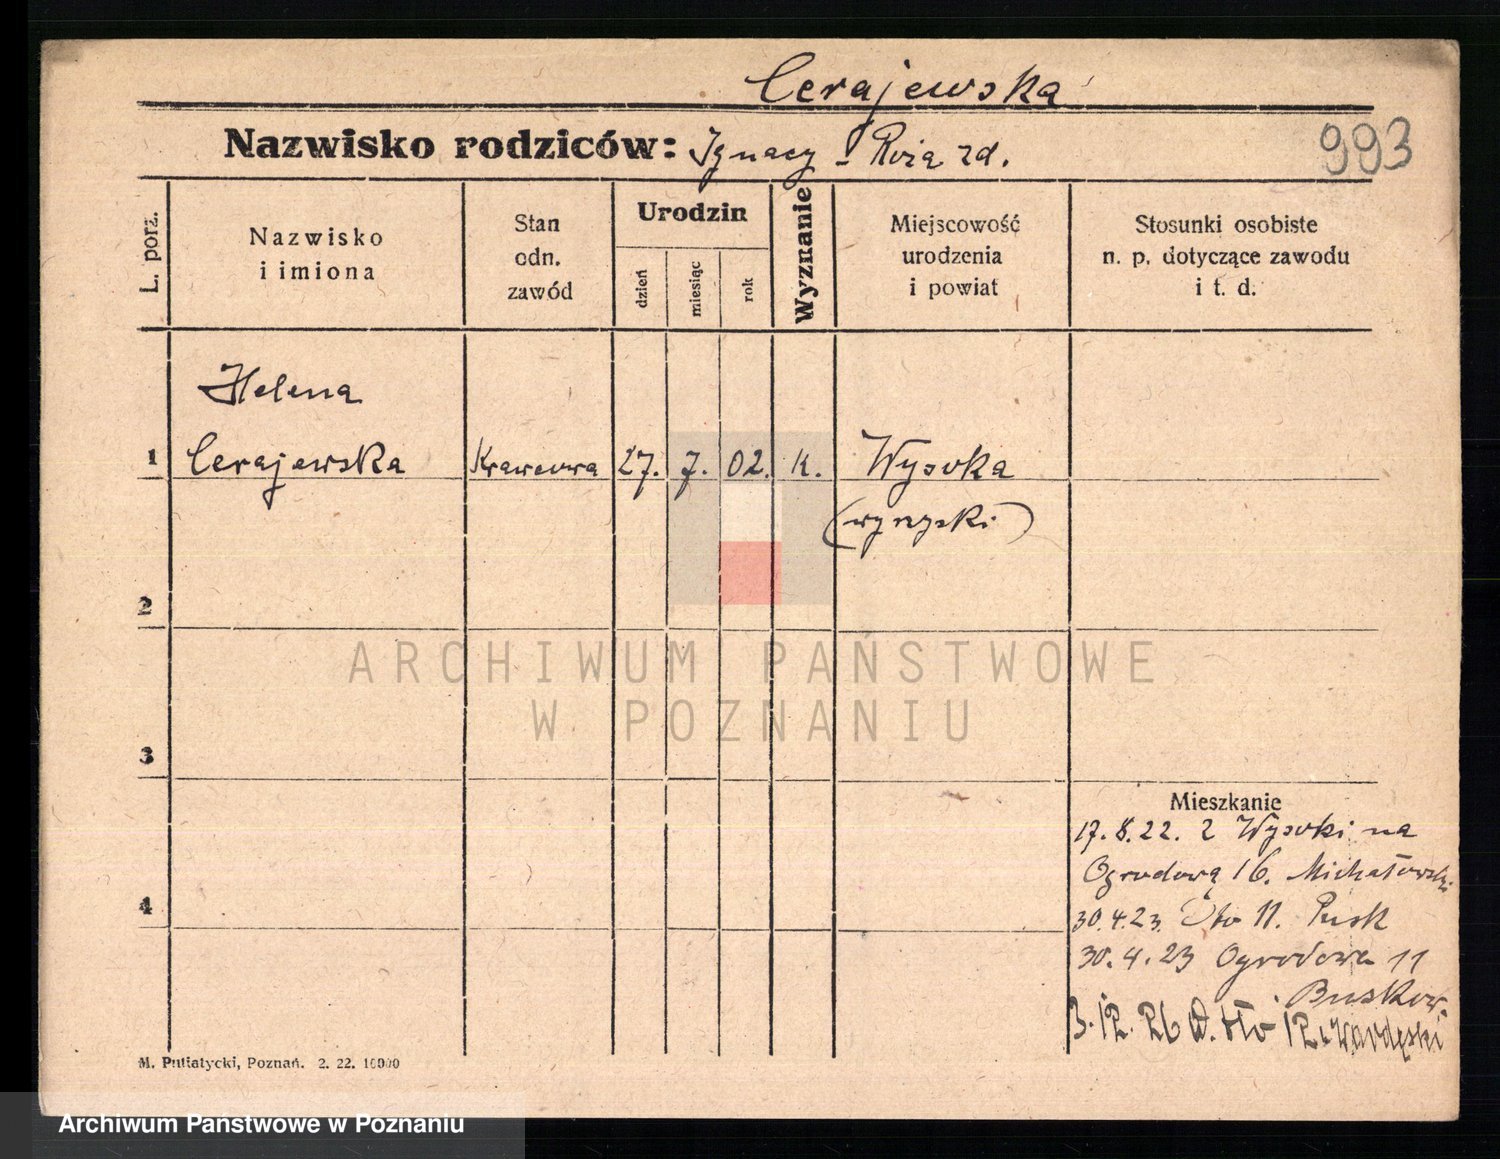 Cerajewska
Nazwisko rodziców: Ignacy - Rozazd.
993
L. porz.
Nazwisko
i imiona
Stan
odn.
zawód
Urodzin
dzień
miesiąc
rok
Wyznanie
Miejscowość
urodzenia
i powiat
Stosunki osobiste
n. p. dotyczące zawodu
i t. d.
Helena
1 Cerajewska Krawcowa 27. 7. 02. k. Wysoka
(wyrzyski)
2
ARCHIWUM PAŃSTWOWE
W POZNANIU
3
Mieszkanie
17.8.22. z Wysoki na
Ogrodową 16. Michałowski
4
30.4.23. 11. Pusk
30.4.23 Ogrodowa 11
Buskow.
3.12.26 12
M. Putiatycki, Poznań. 2. 22. 10000
Archiwum Państwowe w Poznaniu